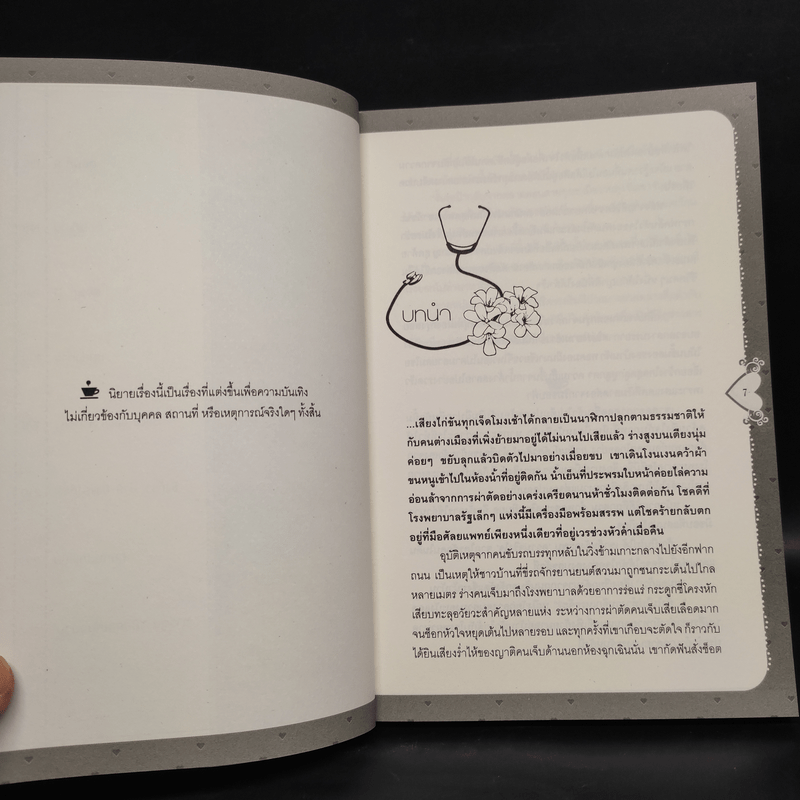 นิยายเรื่องนี้เป็นเรื่องที่แต่งขึ้นเพื่อความบันเทิง
ไม่เกี่ยวข้องกับบุคคล สถานที่ หรือเหตุการณ์จริงใดๆ ทั้งสิ้น
บทนำ
7
...เสียงไก่ขันทุกเจ็ดโมงเช้าได้กลายเป็นนาฬิกาปลุกตามธรรมชาติให้
กับคนต่างเมืองที่เพิ่งย้ายมาอยู่ได้ไม่นานไปเสียแล้ว ร่างสูงบนเตียงนุ่ม
ค่อยๆ ขยับลุกแล้วบิดตัวไปมาอย่างเมื่อยขบ เขาเดินโงนเงนคว้าผ้า
ขนหนูเข้าไปในห้องน้ำที่อยู่ติดกัน น้ำเย็นที่ประพรมใบหน้าค่อยไล่ความ
อ่อนล้าจากการผ่าตัดอย่างเคร่งเครียดนานห้าชั่วโมงติดต่อกัน โชคดีที่
โรงพยาบาลรัฐเล็กๆ แห่งนี้มีเครื่องมือพร้อมสรรพ แต่โชคร้ายกลับตก
อยู่ที่มือศัลยแพทย์เพียงหนึ่งเดียวที่อยู่เวรช่วงหัวค่ำเมื่อคืน
อุบัติเหตุจากคนขับรถบรรทุกหลับในวิ่งข้ามเกาะกลางไปยังอีกฟาก
ถนน เป็นเหตุให้ชาวบ้านที่ขี่รถจักรยานยนต์สวนมาถูกชนกระเด็นไปไกล
หลายเมตร ร่างคนเจ็บมาถึงโรงพยาบาลด้วยอาการร่อแร่ กระดูกซี่โครงหัก
เสียบทะลุอวัยวะสำคัญหลายแห่ง ระหว่างการผ่าตัดคนเจ็บเสียเลือดมาก
จนช็อกหัวใจหยุดเต้นไปหลายรอบ และทุกครั้งที่เขาเกือบจะตัดใจ ก็ราวกับ
ได้ยินเสียงร่ำไห้ของญาติคนเจ็บด้านนอกห้องฉุกเฉินนั่น เขากัดฟันสั่งช็อต